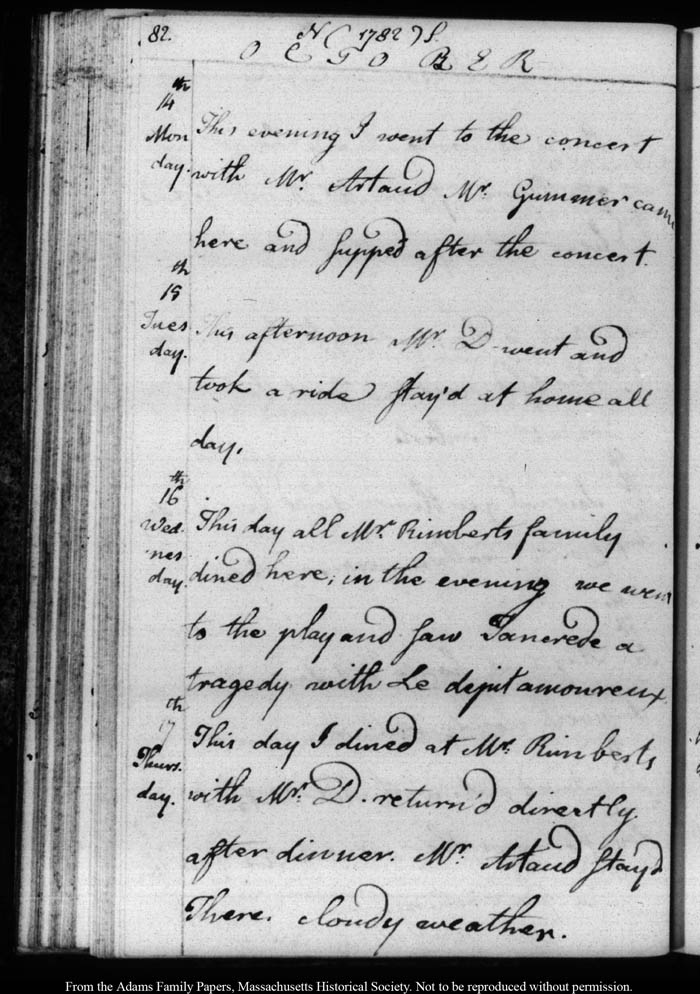 82. N ( 1782 ) S.
OCTOBER
14th Mon day. This evening I went to the concert
with Mr. Artaud Mr. Gummer came
here and supped after the concert.
15th Tues day. This afternoon Mr. D. went and
took a ride stay'd at home all
day.
16th Wed nes day. This day all Mr. Rimberts family
dined here; in the evening we went
to the play and saw Tancrede a
tragedy with Le depit amoureux
17th Thurs. day. This day I dined at Mr. Rimberts
with Mr. D. return'd directly
after dinner. Mr. Artaud stay'd
There. cloudy weather.
From the Adams Family Papers, Massachusetts Historical Society. Not to be reproduced without permission.